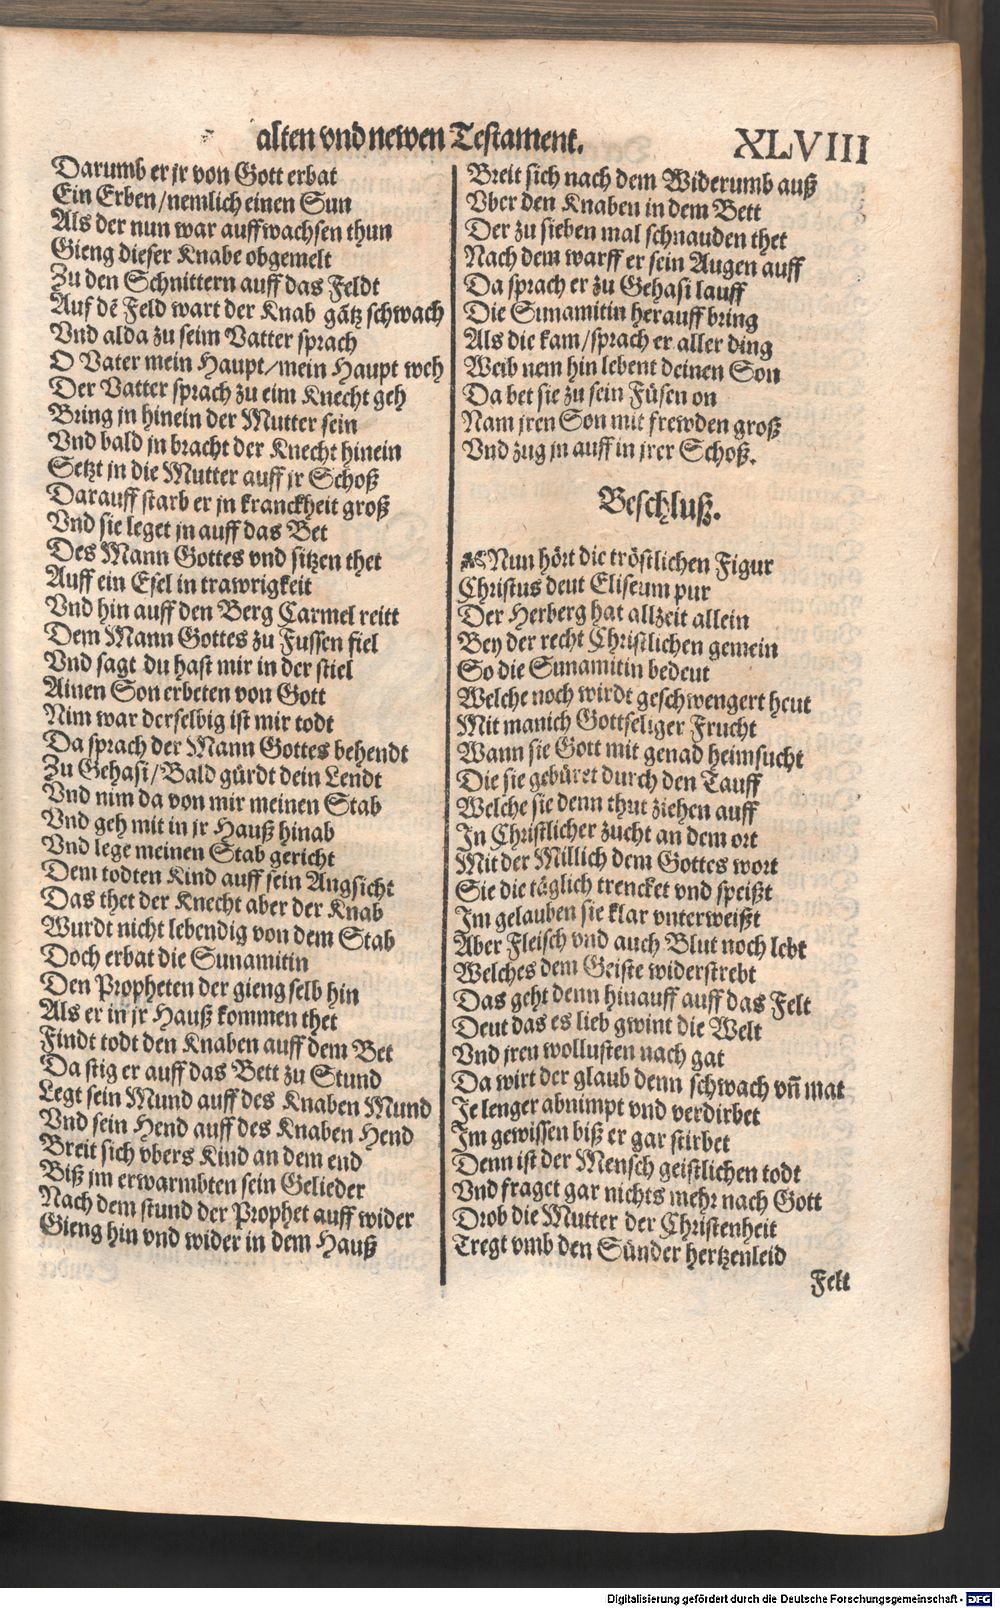 alten vnd newen Testament. XLVIII
Darumb er jr von Gott erbat
Ein Erben/nemlich einen Sun
Als der nun war auffwachsen thun
Gieng dieser Knabe obgemelt
Zu den Schnittern auff das Feldt
Auf dē Feld wart der Knab gātz schwach
Vnd alda zu seim Vatter sprach
O Vater mein Haupt/mein Haupt weh
Der Vatter sprach zu eim Knecht geh
Bring jn hinein der Mutter sein
Vnd bald jn bracht der Knecht hinein
Setzt jn die Mutter auff jr Schoß
Darauff starb er jn kranckheit groß
Vnd sie leget jn auff das Bet
Des Mann Gottes vnd sitzen thet
Auff ein Esel in trawrigkeit
Vnd hin auff den Berg Carmel reitt
Dem Mann Gottes zu Fussen fiel
Vnd sagt du hast mir in der stiel
Ainen Son erbeten von Gott
Nim war derselbig ist mir todt
Da sprach der Mann Gottes behendt
Zu Gehasi/Bald gürdt dein Lendt
Vnd nim da von mir meinen Stab
Vnd geh mit in jr Hauß hinab
Vnd lege meinen Stab gericht
Dem todten Kind auff sein Angsicht
Das thet der Knecht aber der Knab
Wurdt nicht lebendig von dem Stab
Doch erbat die Sunamitin
Den Propheten der gieng selb hin
Als er in jr Hauß kommen thet
Findt todt den Knaben auff dem Bet
Da stig er auff das Bett zu Stund
Legt sein Mund auff des Knaben Mund
Vnd sein Hend auff des Knaben Hend
Breit sich vbers Kind an dem end
Biß jm erwarmbten sein Gelieder
Nach dem stund der Prophet auff wider
Gieng hin vnd wider in dem Hauß
Breit sich nach dem Widerumb auß
Vber den Knaben in dem Bett
Der zu sieben mal schnauden thet
Nach dem warff er sein Augen auff
Da sprach er zu Gehasi lauff
Die Sunamitin herauff bring
Als die kam/sprach er aller ding
Weib nem hin lebent deinen Son
Da bet sie zu sein Füsen on
Nam jren Son mit frewden groß
Vnd zug jn auff in jrer Schoß.
Beschluß.
Nun hört die tröstlichen Figur
Christus deut Eliseum pur
Der Herberg hat allzeit allein
Bey der recht Christlichen gemein
So die Sunamitin bedeut
Welche noch wirdt geschwengert heut
Mit manich Gottseliger Frucht
Wann sie Gott mit genad heimsucht
Die sie gebüret durch den Tauff
Welche sie denn thut ziehen auff
In Christlicher zucht an dem ort
Mit der Millich dem Gottes wort
Sie die täglich trencket vnd speißt
Im gelauben sie klar vnterweißt
Aber Fleisch vnd auch Blut noch lebt
Welches dem Geiste widerstrebt
Das geht denn hinauff auff das Felt
Deut das es lieb gwint die Welt
Vnd jren wollusten nach gat
Da wirt der glaub denn schwach vn̄ mat
Je lenger abnimpt vnd verdirbet
Im gewissen biß er gar stirbet
Denn ist der Mensch geistlichen todt
Vnd fraget gar nichts mehr nach Gott
Drob die Mutter der Christenheit
Tregt vmb den Sünder hertzenleid
Felt
Digitalisierung gefördert durch die Deutsche Forschungsgemeinschaft - DFG